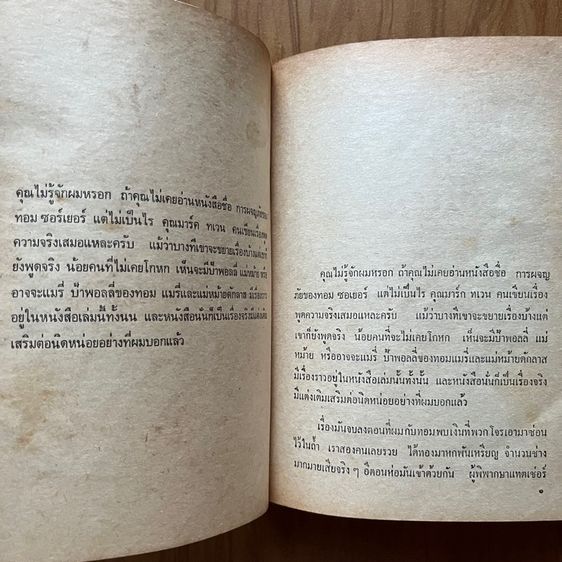 คุณไม่รู้จักผมหรอก ถ้าคุณไม่เคยอ่านหนังสือชื่อ การผจญภัยของ
ทอม ซอร์เยอร์ แต่ไม่เป็นไร คุณมาร์ค ทเวน คนเขียนเรื่องพูด
ความจริงเสมอแหละครับ แม้ว่าบางทีเขาจะขยายเรื่องบ้างแต่เขาก็
ยังพูดจริง น้อยคนที่ไม่เคยโกหก เห็นจะมีป้าพอลลี่ แม่ม่าย หรือ
อาจจะแมรี่ ป้าพอลลี่ของทอม แมรี่และแม่หม้ายดักลาส มีเรื่องราว
อยู่ในหนังสือเล่มนี้ทั้งนั้น และหนังสือนั่นก็เป็นเรื่องจริงมีแต่งเติม
เสริมต่อนิดหน่อยอย่างที่ผมบอกแล้ว
คุณไม่รู้จักผมหรอก ถ้าคุณไม่เคยอ่านหนังสือชื่อ การผจญ
ภัยของทอม ซอเยอร์ แต่ไม่เป็นไร คุณมาร์ก ทเวน คนเขียนเรื่อง
พูดความจริงเสมอแหละครับ แม้ว่าบางทีเขาจะขยายเรื่องบ้างแต่
เขาก็ยังพูดจริง น้อยคนที่จะไม่เคยโกหก เห็นจะมีป้าพอลลี่ แม่
หม้าย หรืออาจจะแมรี่ ป้าพอลลี่ของทอมแมรี่และแม่หม้ายดักลาส
มีเรื่องราวอยู่ในหนังสือเล่มนั้นทั้งนั้น และหนังสือนั่นก็เป็นเรื่องจริง
มีแต่งเติมเสริมต่อนิดหน่อยอย่างที่ผมบอกแล้ว
เรื่องมันจบลงตอนที่ผมกับทอมพบเงินที่พวกโจรเอามาซ่อน
ไว้ในถ้ำ เราสองคนเลยรวย ได้ทองมาหกพันเหรียญ จำนวนช่าง
มากมายเสียจริง ๆ อีตอนห่อมันเข้าด้วยกัน ผู้พิพากษาแทตเช่อร์
๑